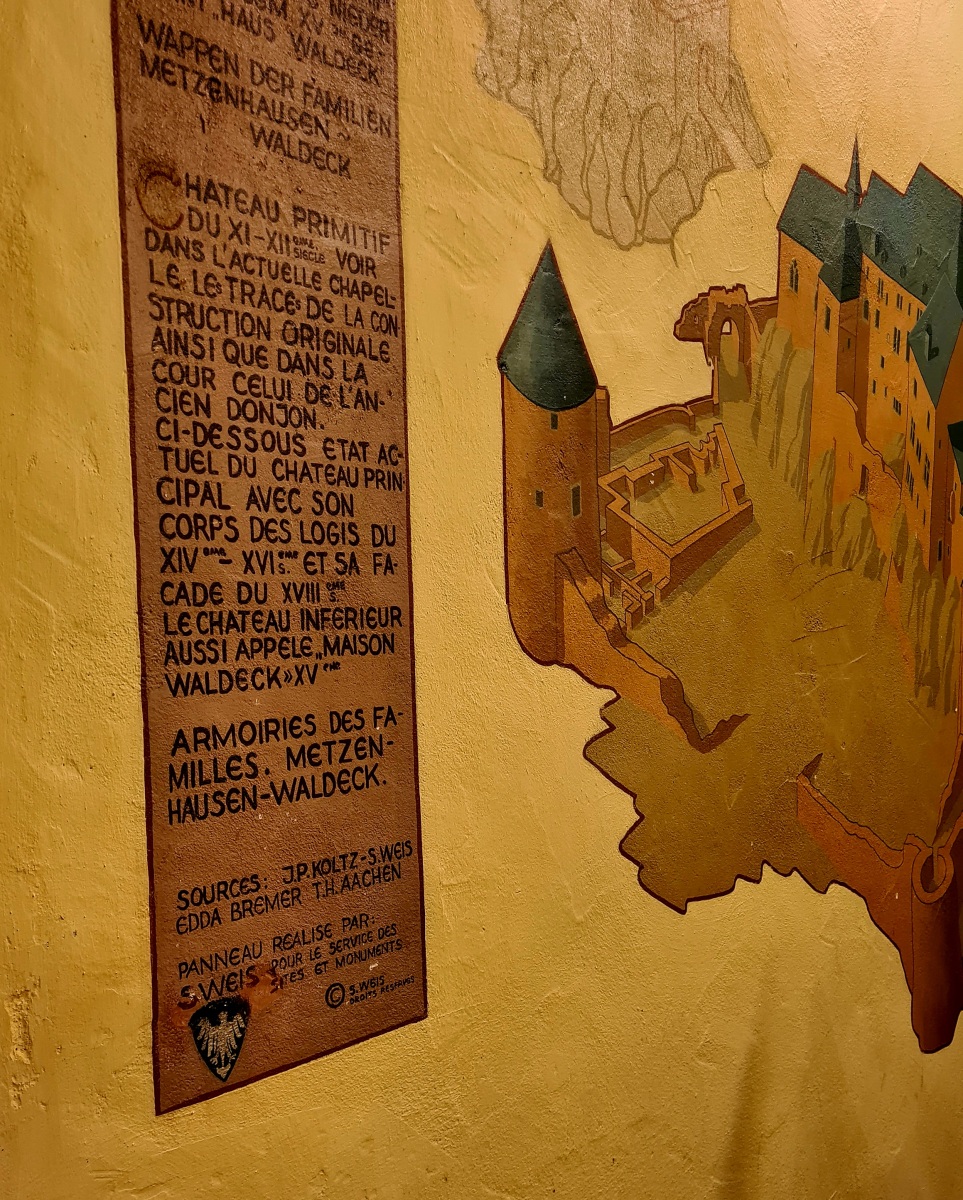 HAUS WALDECK
WAPPEN DER FAMILIEN
METZENHAUSEN ~
WALDECK
CHATEAU PRIMITIF
DU XI-XII QME SIECLE VOIR
DANS L'ACTUELLE CHAPEL-
LE LES TRACES DE LA CON
STRUCTION ORIGINALE
AINSI QUE DANS LA
COUR CELUI DE L'AN-
CIEN DONJON.
CI-DESSOUS ETAT AC-
TUEL DU CHATEAU PRIN
CIPAL AVEC SON
CORPS DES LOGIS DU
XIV EME - XVI EME S. ET SA FA-
CADE DU XVIII EME S.
LE CHATEAU INFERIEUR
AUSSI APPELE „MAISON
WALDECK» XV EME
ARMOIRIES DES FA-
MILLES. METZEN-
HAUSEN-WALDECK.
SOURCES: J.P.KOLTZ-S.WEIS
EDDA BREMER T.H.AACHEN
PANNEAU REALISE PAR:
S.WEIS POUR LE SERVICE DES
SITES ET MONUMENTS
© S.WEIS
DROITS RESERVES